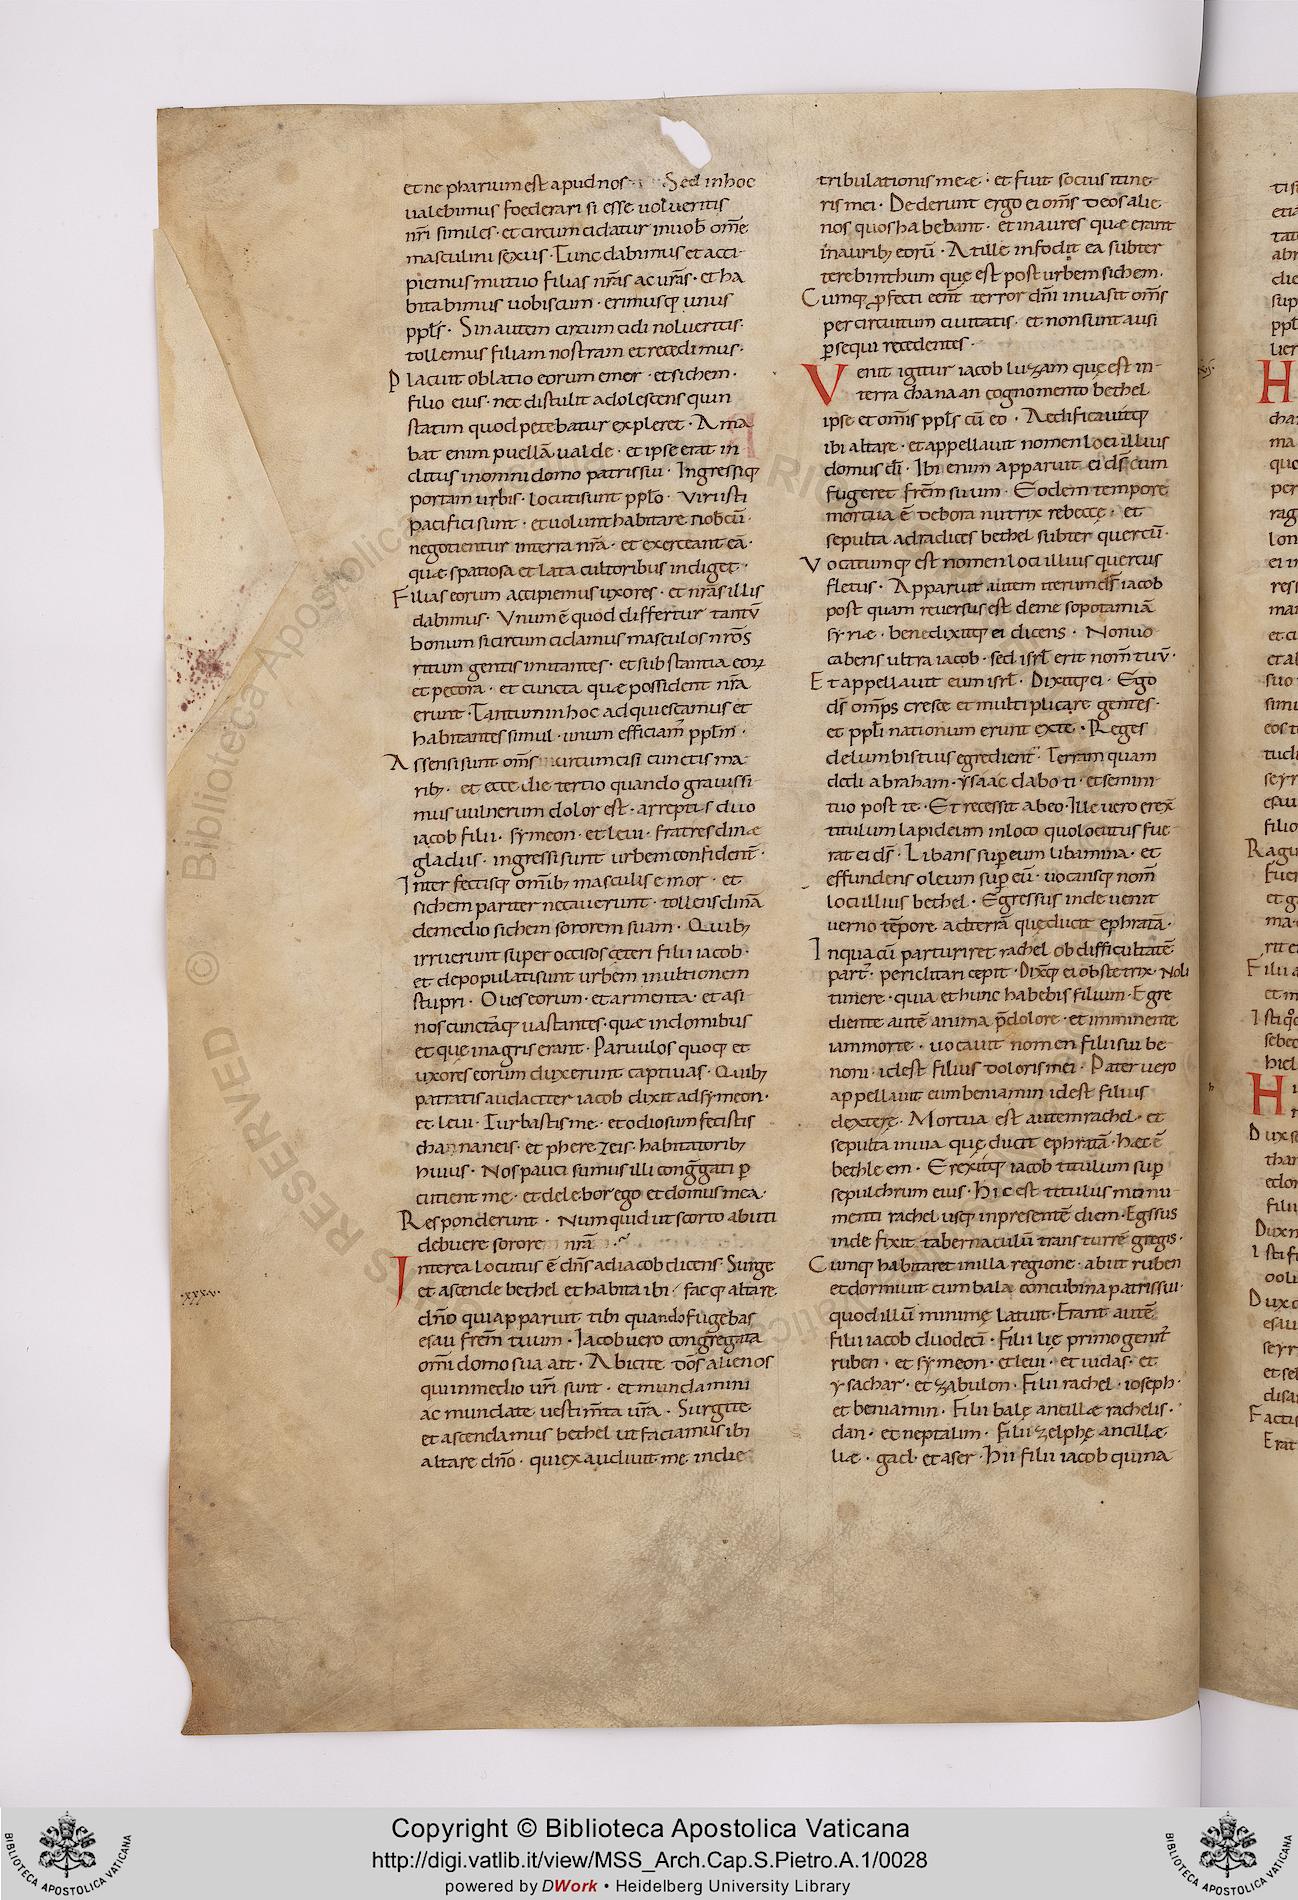 et ne pharium est apud nos · Sed in hoc
ualebimus foederari si esse uolueritis
nr̄i similes · et circumcidatur in uob̄ om̄e
masculini sexus · Tunc dabimus et acci
piemus mutuo filias nr̄as ac ur̄as · et ha
bitabimus uobiscum · erimusq; unus
ppl̄s · Sin autem circumcidi nolueritis ·
tollemus filiam nostram et recedimus ·
Placuit oblatio eorum emor · et sichem ·
filio eius · nec distulit adolescens quin
statim quod petebatur expleret · Ama
bat enim puellā ualde · et ipse erat in
clitus in omni domo patris sui · Ingressiq;
portam urbis · locuti sunt ppl̄o · Viri isti
pacifici sunt · et uolunt habitare nobcū ·
negotientur in terra nr̄a · et exerceant eā ·
quæ spatiosa et lata cultoribus indiget ·
Filias eorum accipiemus uxores · et nr̄as illis
dabimus · Vnum ē quod differtur tantū
bonum si circumcidamus masculos nr̄os
ritum gentis imitantes · et substantia eoꝝ
et pecora · et cuncta quæ possident nr̄a
erunt · Tantum in hoc adquiescamus et
habitantes simul · unum efficiam ppl̄m ·
Assensi sunt om̄s circumcisi cunctis ma
rib; · et ecce die tertio quando grauissi
mus uulnerum dolor est · arreptis duo
iacob filii · symeon · et leui · fratres dinæ
gladiis · ingressi sunt urbem confident̄ ·
Interfectisq; om̄ib; masculis emor · et
sichem pariter necauerunt · tollens dinā
de medio sichem sororem suam · Quib;
irruerunt super occisos cęteri filii iacob ·
et depopulati sunt urbem in ultionem
stupri · Oues eorum · et armenta · et asi
nos cunctaq; uastantes · quæ in domibus
et quę in agris erant · Paruulos quoq; et
uxores eorum duxerunt captiuas · Quib;
patratis audacter iacob dixit ad symeon ·
et leui · Turbastis me · et odiosum fecistis
channaneis · et pherezeis · habitatorib;
huius · Nos pauci sumus illi cong̅gati ꝑ
cutient me · et delebor ego et domus mea ·
Responderunt · Numquid ut scorto abuti
debuere sorore nr̄ā
Interea locutus ē dn̄s ad iacob dicens · Surge
et ascende bethel et habita ibi · facq; altare
dn̄o qui apparuit tibi quando fugebas
esau frem̄ tuum · Iacob uero cong̅regata
om̄i domo sua ait · Abicite d̄os alienos
qui in medio ur̄i sunt · et mundamini
ac mundate uestim̄ta ur̄a · Surgite
et ascendamus bethel ut faciamus ibi
altare dn̄o · qui exaudiuit me in die
·xxxv·
tribulationis meæ · et fuit socius itine
ris mei · Dederunt ergo ei om̄s deos alie
nos quos habebant · et inaures quæ erant
in aurib; eorū · At ille infodit ea subter
terebinthum quę est post urbem sichem ·
Cumq; ꝓfecti eēnt terror dn̄i inuasit om̄s
per circuitum ciuitatis · et non sunt ausi
ꝑsequi recedentes ·
Venit igitur iacob luzam quę est in
terra chanaan cognomento bethel
ipse et omīs ppl̄s cū eo · Aedificauitq;
ibi altare · et appellauit nomen loci illius
domus dī · Ibi enim apparuit ei ds̄ cum
fugeret frem̄ suum · Eodem tempore
mortua ē debora nutrix rebeccę · et
sepulta ad radices bethel subter quercū ·
Vocatumq; est nomen loci illius quercus
fletus · Apparuit autem iterum ds̄ iacob
post quam reuersus est de mesopotamiā
syriæ · benedixitq; ei dicens · Non uo
caberis ultra iacob · sed isrl̄ erit nom̄ tuū ·
Et appellauit eum isrl̄ · Dixitq; ei · Ego
ds̄ om̄ps cresce et multiplicare gentes ·
et ppl̄i nationum erunt ex te · Reges
de lumbis tuis egredient̄ · Terram quam
dedi abraham · ysaac dabo ti · et semini
tuo post te · Et recessit ab eo · Ille uero erex̄
titulum lapideum in loco quo locutus fue
rat ei ds̄ · Libans suꝑ eum libamina · et
effundens oleum suꝑ eū · uocansq; nom̄
loci illius bethel · Egressus inde uenit
uerno tēpore ad terrā quę ducit ephratā ·
In qua cū parturiret rachel ob difficultatē
part · periclitari cepit · Dixq; ei obstetrix · Noli
timere · quia et hunc habebis filium · Egre
diente autē anima p̄ dolore · et imminente
iam morte · uocauit nomen filii sui be
noni · id est filius doloris mei · Pater uero
appellauit eum beniamin id est filius
dexterę · Mortua est autem rachel · et
sepulta in uia quę ducit ephratā · hæc ē
bethleem · Erexitq; iacob titulum suꝑ
sepulchrum eius · hic est titulus monu
menti rachel usq; in presentē diem · Egssus
inde fixit tabernaculū trans turrē gregis ·
Cumq; habitaret in illa regione · abiit ruben
et dormiuit cum bala concubina patris sui ·
quod illū minime latuit · Erant autē
filii iacob duodecī · Filii lię primogenit
ruben · et symeon · et leui · et iudas · et
ysachar · et zabulon · Filii rachel · ioseph ·
et beniamin · Filii balę ancillæ rachelis ·
dan · et neptalim · Filii zelphę ancillæ
liæ · gad · et aser · hii filii iacob quina
H
H
© Biblioteca Apostolica Vaticana
RESERVED
Copyright © Biblioteca Apostolica Vaticana
http://digi.vatlib.it/view/MSS_Arch.Cap.S.Pietro.A.1/0028
powered by DWork • Heidelberg University Library
BIBLIOTECA APOSTOLICA VATICANA
BIBLIOTECA APOSTOLICA VATICANA